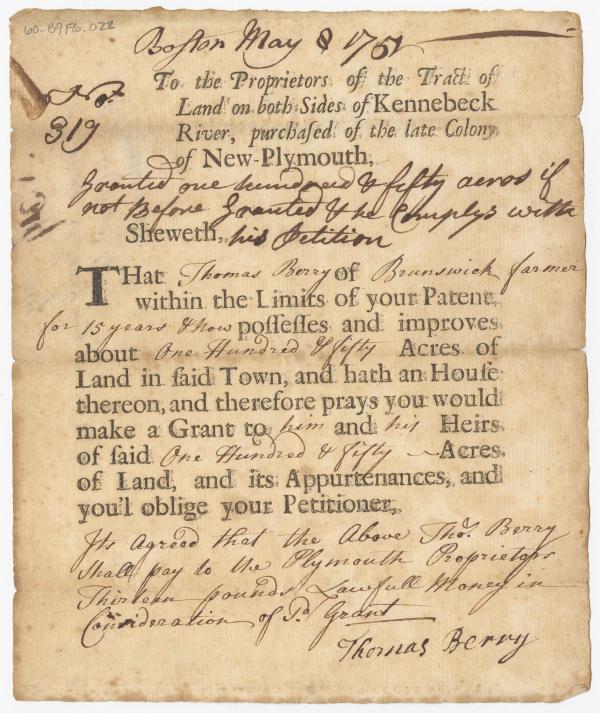 60-B9F6-022
Boston May 8 1751
To the Proprietors of the Tract of
Land on both Sides of Kennebeck
River, purchaſed of the late Colony
of New-Plymouth,
No.
319
Granted one hundred & fifty acres if
not Before Granted & he Complys with
Sheweth, his Petition
THat Thomas Berry of Brunswick farmer
within the Limits of your Patent,
for 15 years & now poſſeſſes and improves
about One Hundred & fifty Acres of
Land in ſaid Town, and hath an Houſe
thereon, and therefore prays you would
make a Grant to him and his Heirs
of ſaid One Hundred & fifty Acres
of Land, and its Appurtenances, and
you'l oblige your Petitioner,
Its Agreed that the Above Thos. Berry
Shall pay to the Plymouth Proprietors
Thirteen pounds Lawfull Money in
Consideration of Sd. Grant
Thomas Berry